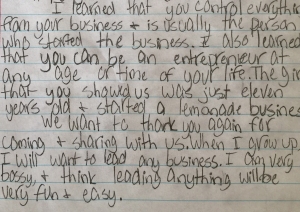 I learned that you control everything
from your business + is usually the person
who started the business. I also learned
that you can be an entrepreneur at
any age or time of your life. The
that you showed us was just eleven
years old + started a lemonade
We want to thank you again for
coming + sharing with us. When I grow up
I will want to lead any business. I am very
bossy, + think leading anything will be
very fun + easy.